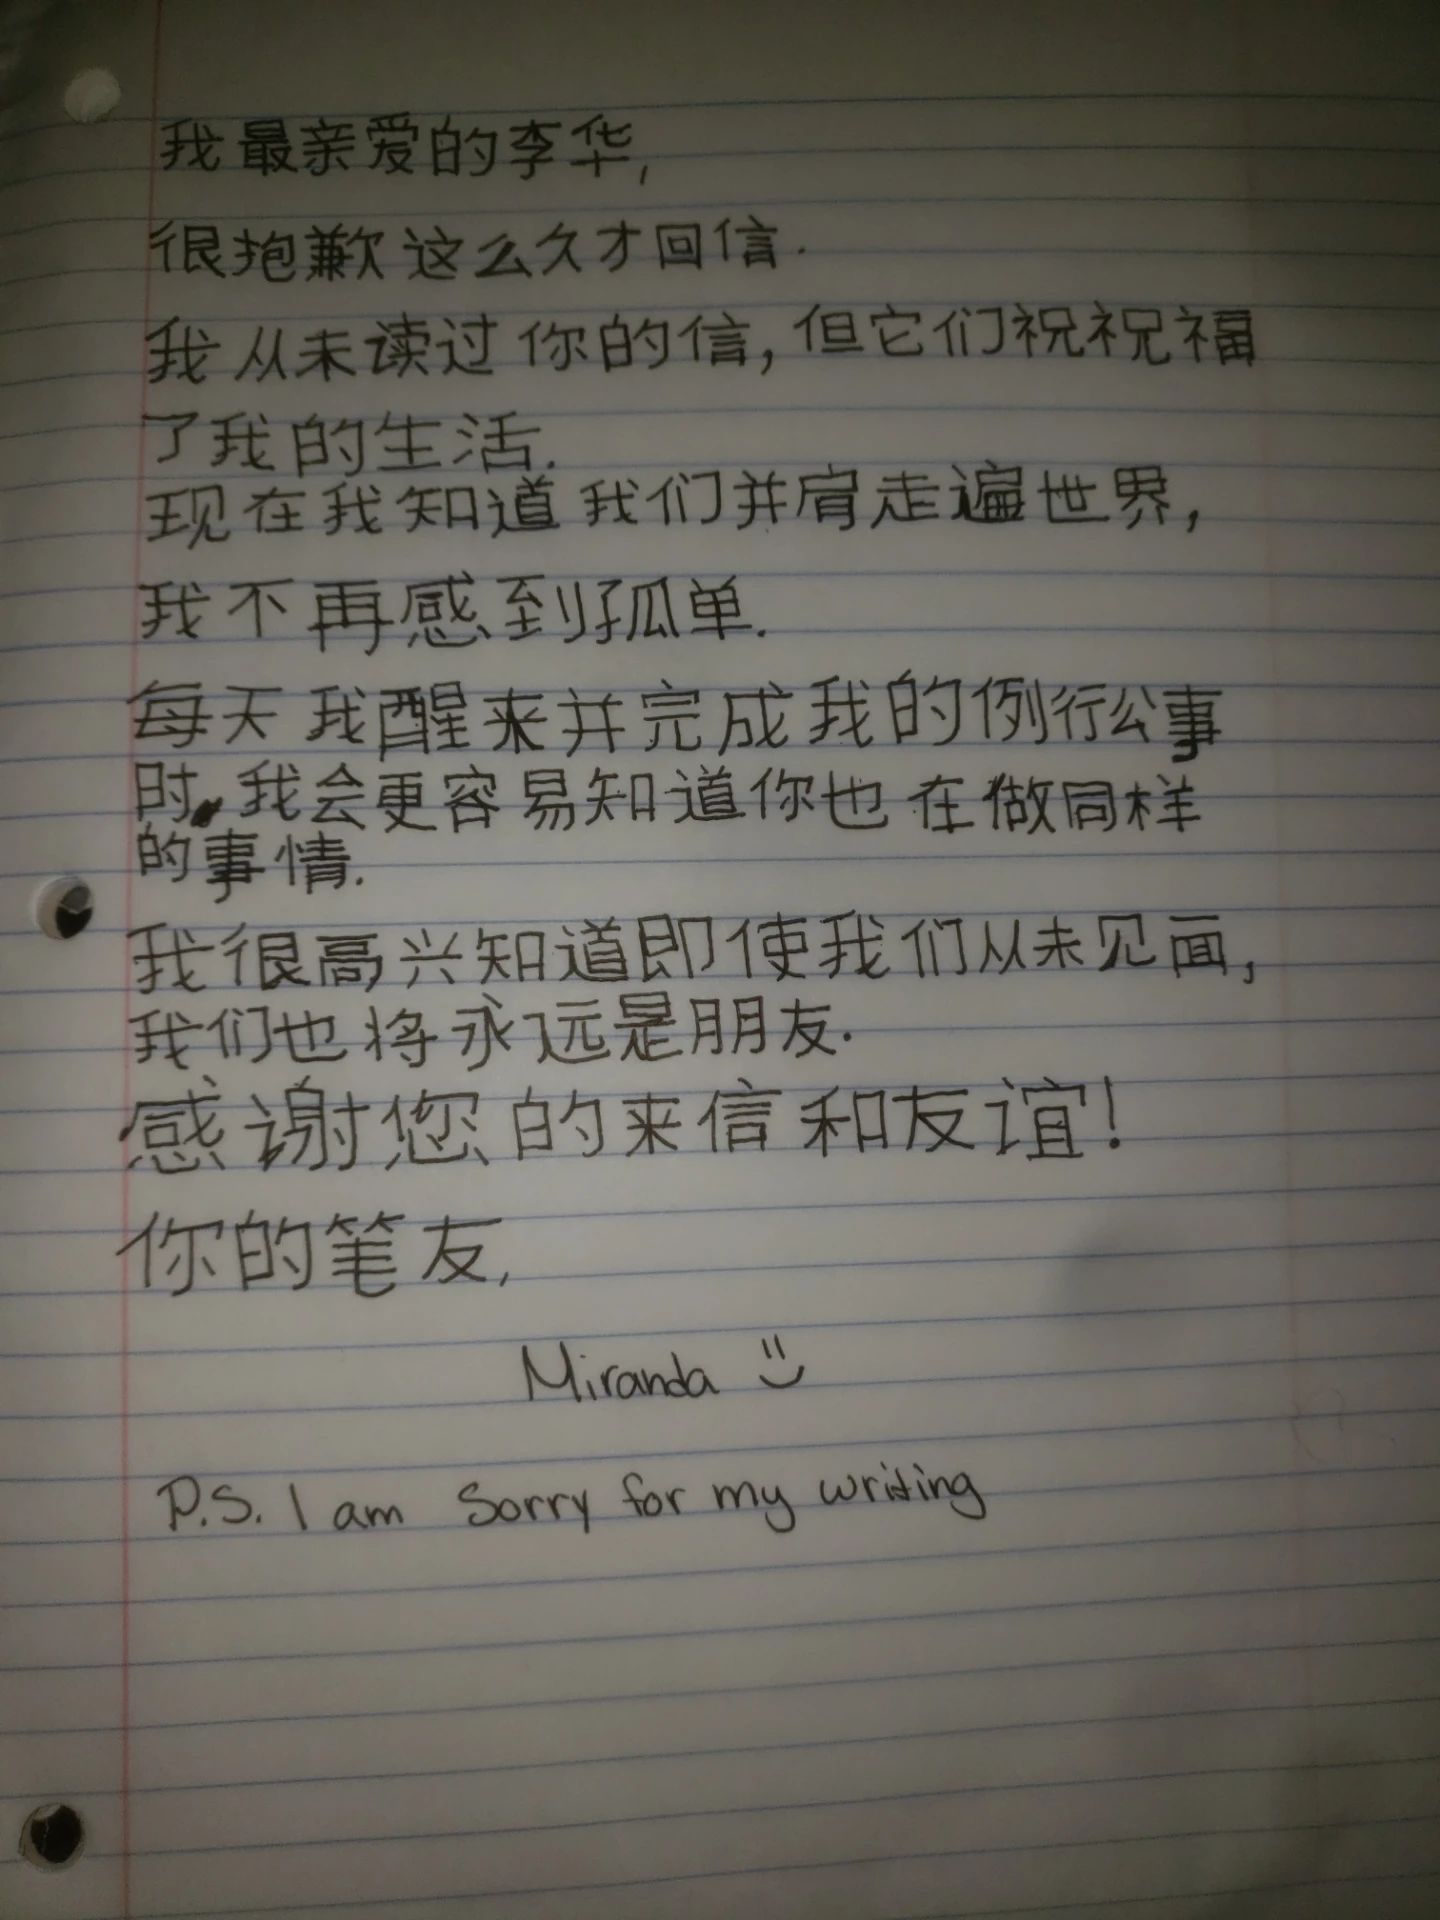 我最亲爱的李华,
很抱歉这么久才回信.
我从未读过你的信,但它们祝祝福
了我的生活.
现在我知道我们并肩走遍世界,
我不再感到孤单.
每天我醒来并完成我的例行公事
时,我会更容易知道你也在做同样
的事情.
我很高兴知道即使我们从未见面,
我们也将永远是朋友.
感谢您的来信和友谊!
你的笔友,
Miranda
P.S. I am Sorry for my writing